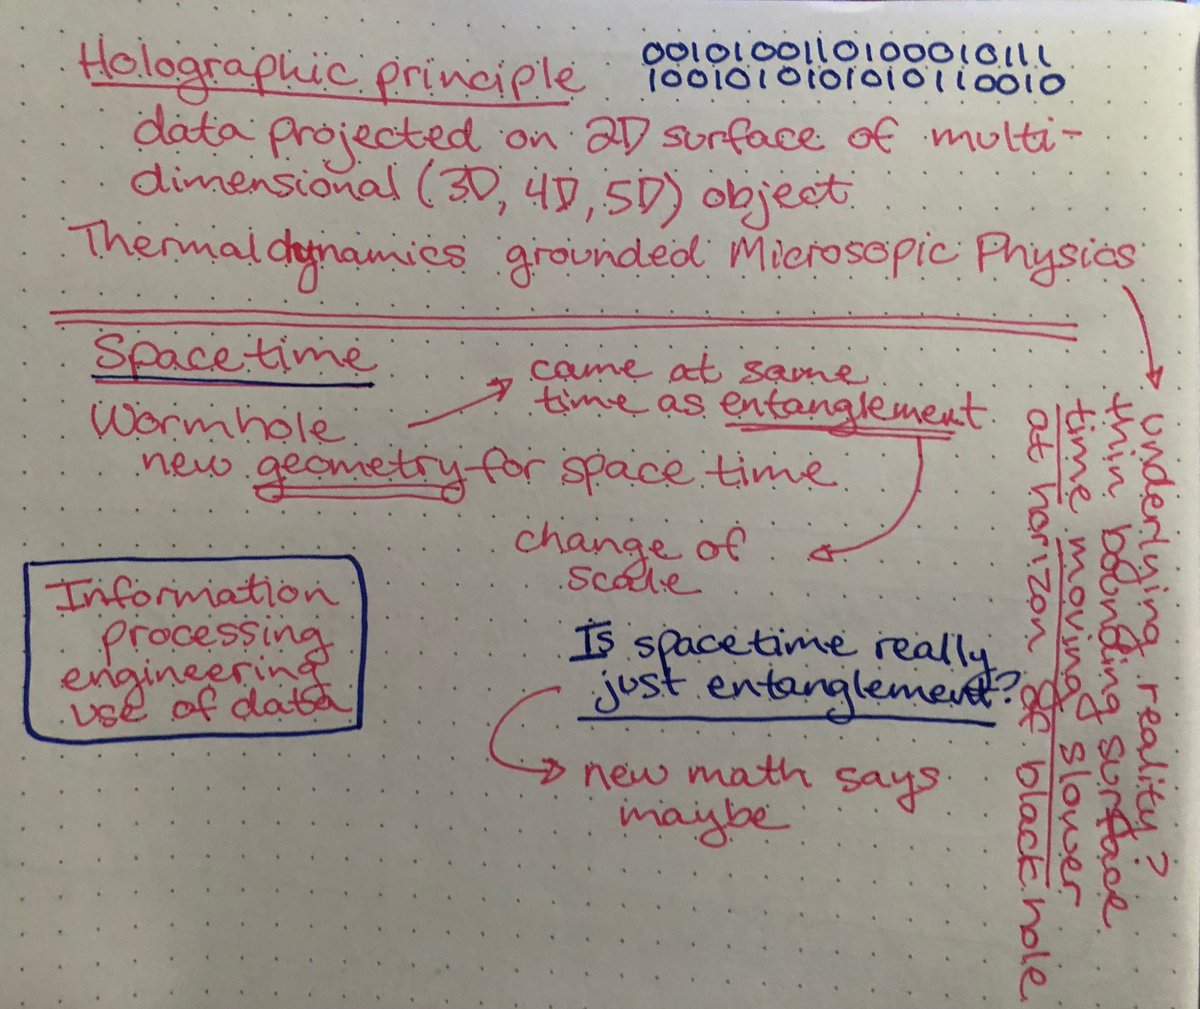 Holographic principle
0010100110100010111
1001010101010110010
data projected on 2D surface of multi-
dimensional (3D, 4D, 5D) object
Thermaldynamics grounded Microsopic Physics
Underlying reality?
thin bounding surface
time moving slower
at horizon of black hole
Spacetime
Wormhole
came at same
time as entanglement
new geometry for space time
change of
scale
Information
processing
engineering
use of data
Is spacetime really
just entanglement?
new math says
maybe